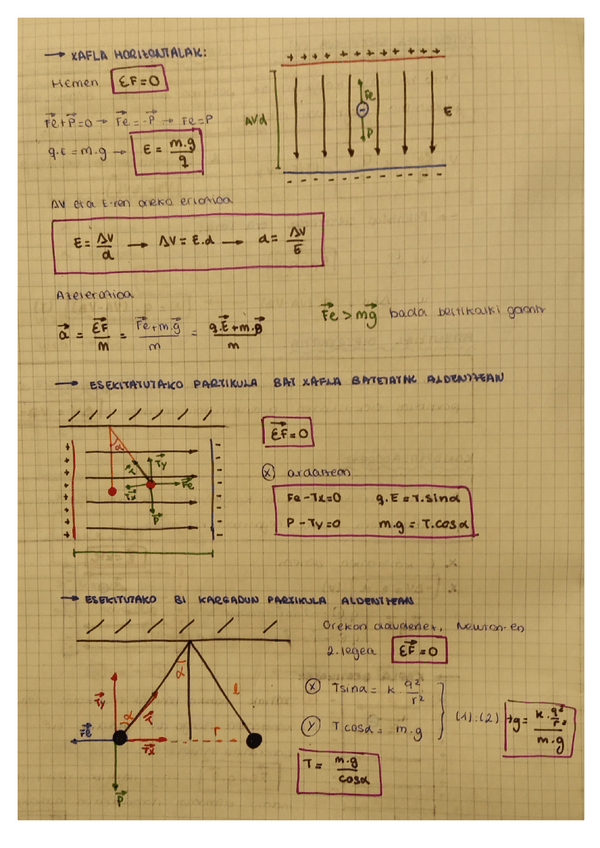 → XAFLA HORIZONTALAK:
Hemen ΣF=0
+ + + + + + + + + + + +
Fe+P=0 → Fe=-P → Fe=P
q.E = m.g → E = m.g/q
ΔVd
Fe
-
P
E
- - - - - - - - - - - -
ΔV eta E-ren arteko erlazioa
E = ΔV/d → ΔV = E.d → d = ΔV/E
Azelerazioa
a = ΣF/m = Fe+m.g/m = q.E+m.g/m
Fe > mg bada
→ ESEKITATUTAKO PARTIKULA BAT XAFLA BATETATIK ALDENTZEAN
α
T
Ty
Tx
Fe
P
ΣF=0
X ardatzean
Fe-Tx=0 q.E=T.sinα
P-Ty=0 m.g = T.cosα
→ ESEKITUTAKO BI KARGADUN PARTIKULA ALDENTZEAN
Orekan daudenez, Newton-en
2. legea ΣF=0
α
l
Ty
α
T
Fe
Tx
r
P
X Tsinα = k.q²/r²
Y Tcosα = m.g
(1).(2)
T = m.g/cosα